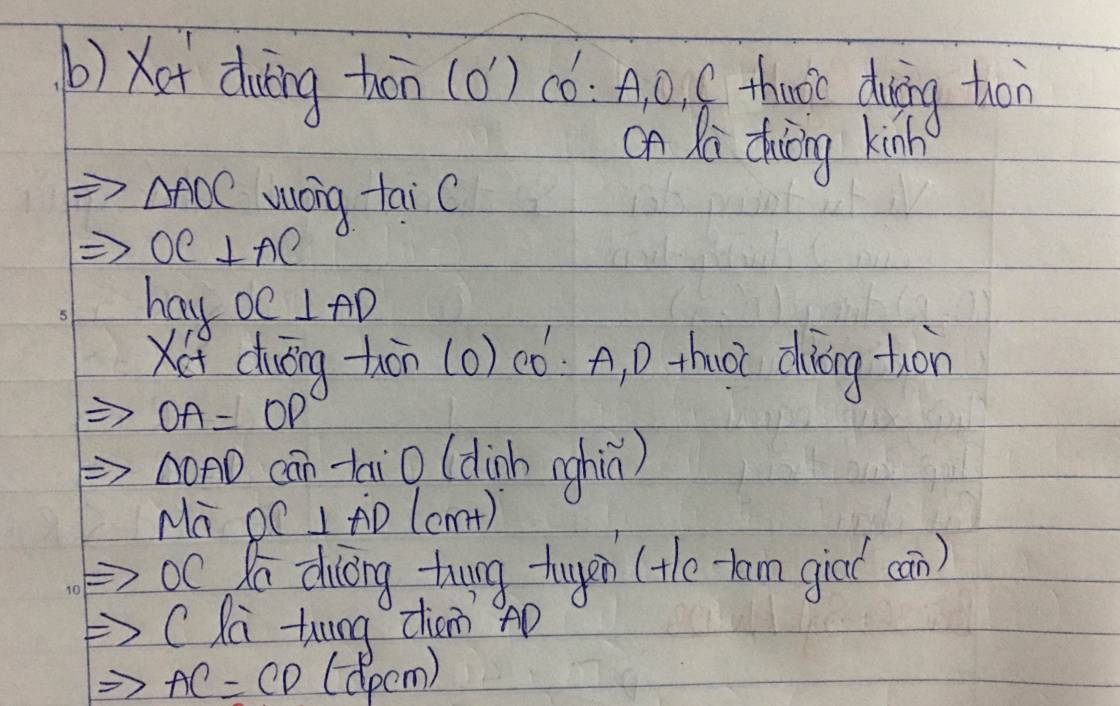 b) Xét đường tròn (O') có: A,O,C thuộc đường tròn
OA là đường kính
=> ΔAOC vuông tại C
=> OC ⊥ AC
hay OC ⊥ AD
5
Xét đường tròn (O) có: A,D thuộc đường tròn
=> OA = OD
=> ΔOAD cân tại O (định nghĩa)
Mà OC ⊥ AD (cmt)
=> OC là đường trung tuyến (t/c tam giác cân)
10
=> C là trung điểm AD
=> AC = CD (đpcm)